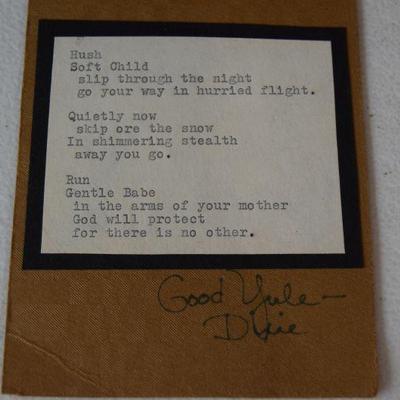 Hush
Soft Child
slip through the night
go your way in hurried flight.
Quietly now
skip ore the snow
In shimmering stealth
away you go.
Run
Gentle Babe
in the arms of your mother
God will protect
for there is no other.
Good Yule-
Dixie